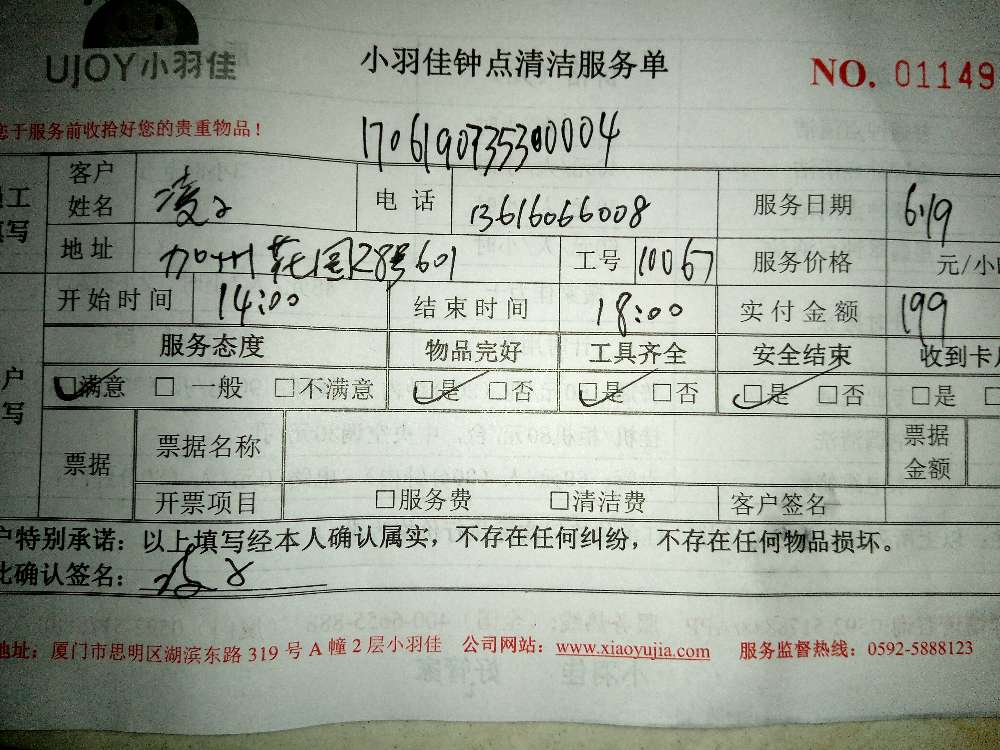 UJOY小羽佳
小羽佳钟点清洁服务单
NO. 01149
于服务前收拾好您的贵重物品!
1706190735300004
客户姓名 凌 电话 13616066008 服务日期 6.19
地址 加州花园28号601 工号 10067 服务价格 元/小
开始时间 14:00 结束时间 18:00 实付金额 199
服务态度 物品完好 工具齐全 安全结束 收到卡
□满意 □一般 □不满意 □是 □否 □是 □否 □是 □否 □是 □
票据 票据名称 票据金额
开票项目 □服务费 □清洁费 客户签名
户特别承诺：以上填写经本人确认属实，不存在任何纠纷，不存在任何物品损坏。
此确认签名：
地址：厦门市思明区湖滨东路 319 号 A 幢 2 层小羽佳 公司网站：www.xiaoyujia.com 服务监督热线：0592-5888123